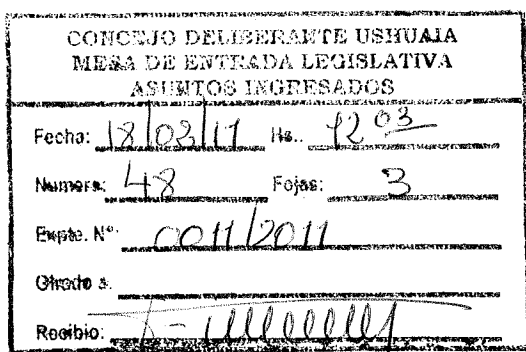 CONCEJO DELIBERANTE USHUAIA
MESA DE ENTRADA LEGISLATIVA
ASUNTOS INGRESADOS
Fecha: 18/03/11 Hs.. 12 03
Numero: 48 Fojas: 3
Expte. N° 0011/2011
Girado a:
Recibio: